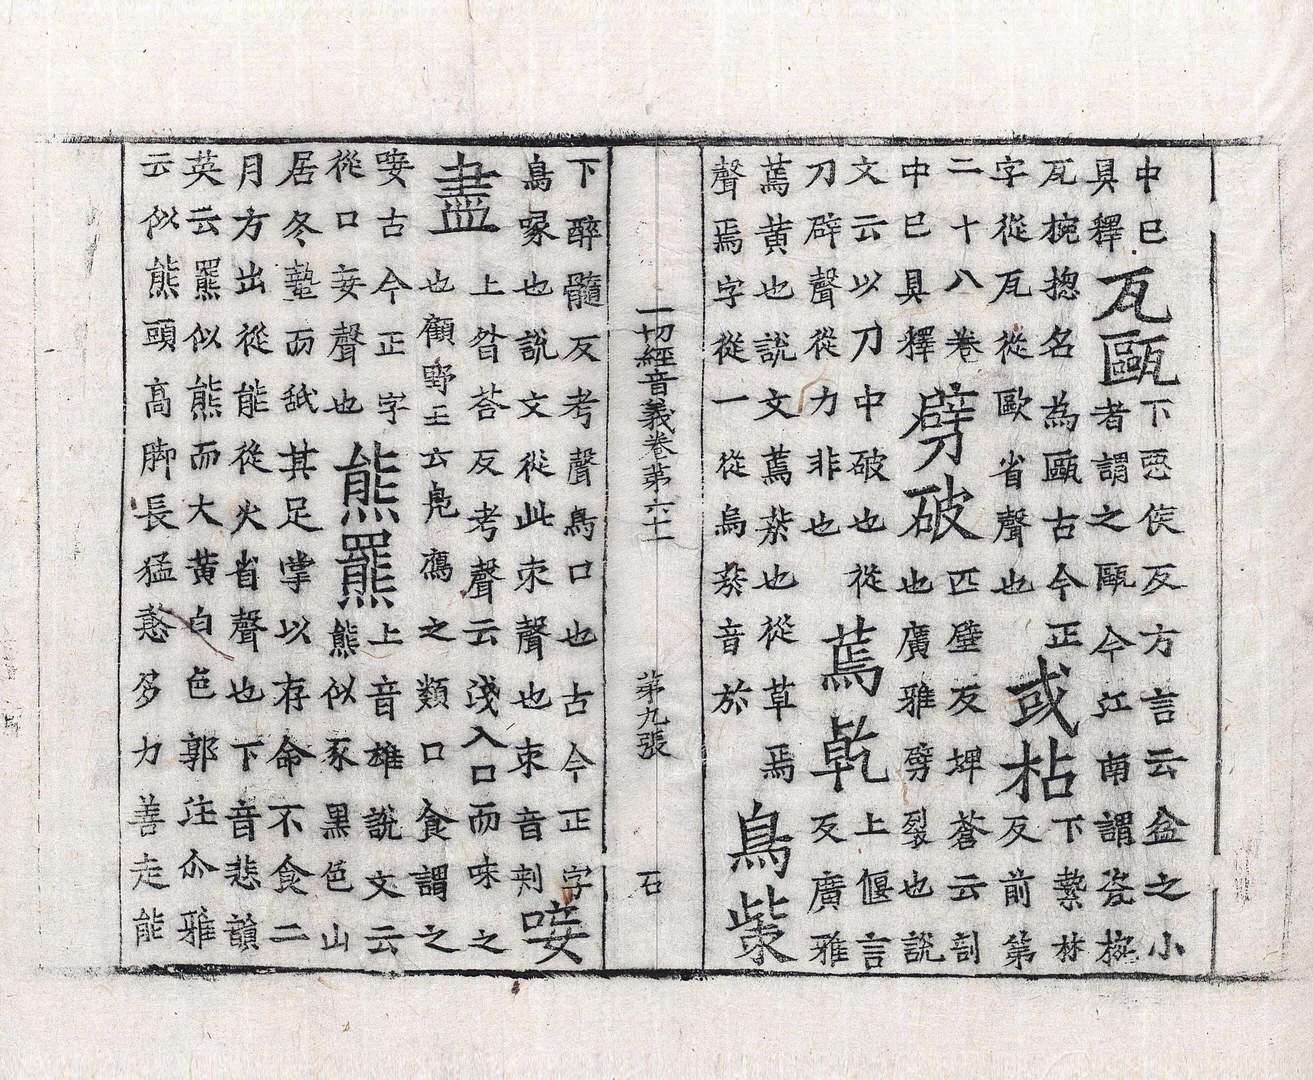 中巳具釋瓦甌下惡侯反方言云盆之小者謂之甌今江南謂瓷椀
瓦椀捴名為甌古今正字從瓦從歐省聲也或枯下縶林反前第
二十八卷中巳具釋劈破匹壁反埤蒼云剖也廣雅劈裂也說
文云以刀中破也從刀辟聲從力非也蔫乹上偃言反廣雅
蔫黄也說文蔫菸也從草焉聲焉字從一從烏菸音於鳥㭰
一切經音義卷第六十一 第九張 石
下醉髓反考聲鳥口也古今正字鳥喙也說文從此朿聲也朿音刺唼
盡上咠荅反考聲云淺入口而味之也顧野王云鳧鴈之類口食謂之
唼古今正字從口妾聲也熊羆上音雄說文云熊似豕黑色山
居冬蟄而舐其足掌以存命不食二月方出從能從火省聲也下音悲韻
英云羆似熊而大黄白色郭注尒雅云似熊頭高脚長猛憨多力善走能